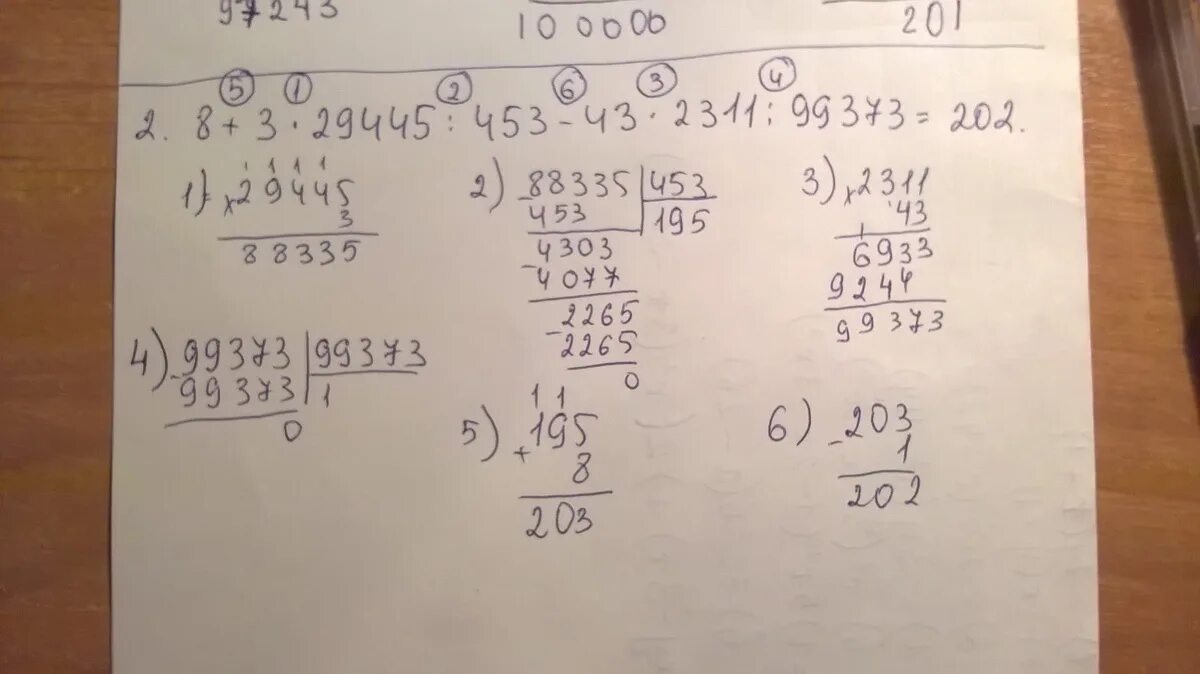 97243
100000
201
⑤ ① ② ⑥ ③ ④
2. 8 + 3 · 29445 : 453 - 43 · 2311 : 99373 = 202.
1)
1 1 1 1
× 29445
3
88335
2)
- 88335 | 453
453 | 195
4303
- 4077
2265
- 2265
0
3)
× 2311
43
1
6933
9244
99373
4)
- 99373 | 99373
99373 | 1
0
5)
1 1
+ 195
8
203
6)
- 203
1
202